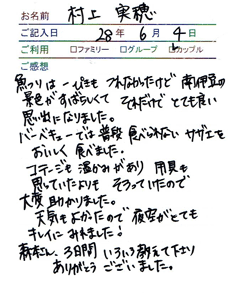 お名前 村上 実穂
ご記入日 28年6月4日
ご利用 □ファミリー □グループ □カップル
ご感想
魚つりは一ぴきも つれなかったけど 南伊豆の
景色がすばらしくて それだけで とても良い
思い出になりました。
バーベキューでは普段 食べられない サザエを
おいしく 食べました。
コテージも 温かみがあり 用具も
思っていたよりも そろっていたので
大変 助かりました。
天気もよかったので 夜空がとても
キレイに みれました!
森本さん、3日間 いろいろ教えて下さり
ありがとう ございました。